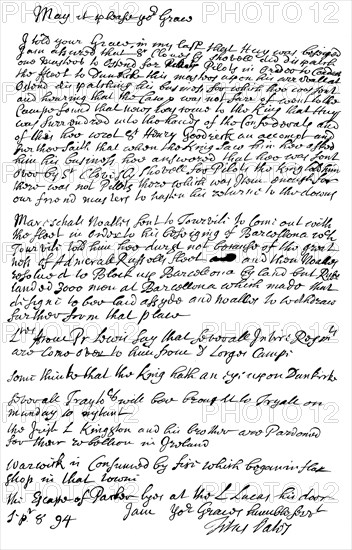 May it please yor Grace
I told your Grace in my last that Huy was besieged
am assured that Sr Clowdly Shovell did dispatch
one was to Ostend for Pilots in order to conduct
the fleet to Dunkirk this was upon his arrivall at
Ostend dispatching his business for which he was sent
and hearing that the Camp was not farr of went to the
Camp found that news was come to the King that Huy
was surrendred into the hands of the Confederats and
of this hee wrot Sr Henry Goodrick an accompt and
further saith that when the King saw him hee asked
him his business hee answered that hee was sent
over by Sr Clowdly Shovell for Pilots the King told him
there was not Pilots there which was then enough for
our friend makes to hasten his returne to the downs
Marischall Noailes sent to Tourvill to come out with
the fleet in order to his besieging of Barcellona
Tourvill told him hee durst not because of the
ness of Admerall Russells fleet and then Noailes
resolved to Block up Barcelona by land but Russ
landed 3000 men at Barcellona which made that
disign to bee laid asyde and Noailles to withdraw
further from that place
Lres from Pr Lewis say that severall Intire Regmts
are come over to him from D Lorges Camp
some thinke that the King hath an eye upon Dunkirke
Severall will bee brought to Tryall on
munday
the Irish L Kingston and his brother are Pardoned
for their rebellion in Ireland
Warwick is Consumed by fire which began in flax
shop in that towne
the Escape of Parker lyes at the L Lucas his door
Spr 8 94 I am Yor Graces humble servt
Titus Oates